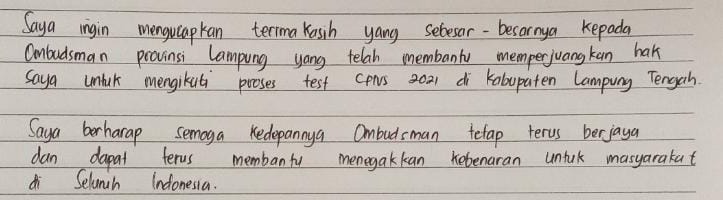 Saya ingin mengucapkan terima kasih yang sebesar - besarnya kepada
Ombudsman provinsi Lampung yang telah membantu memperjuangkan hak
saya untuk mengikuti proses test CPNS 2021 di Kabupaten Lampung Tengah.
Saya berharap semoga kedepannya Ombudsman tetap terus berjaya
dan dapat terus membantu menegakkan kebenaran untuk masyarakat
di Seluruh Indonesia.